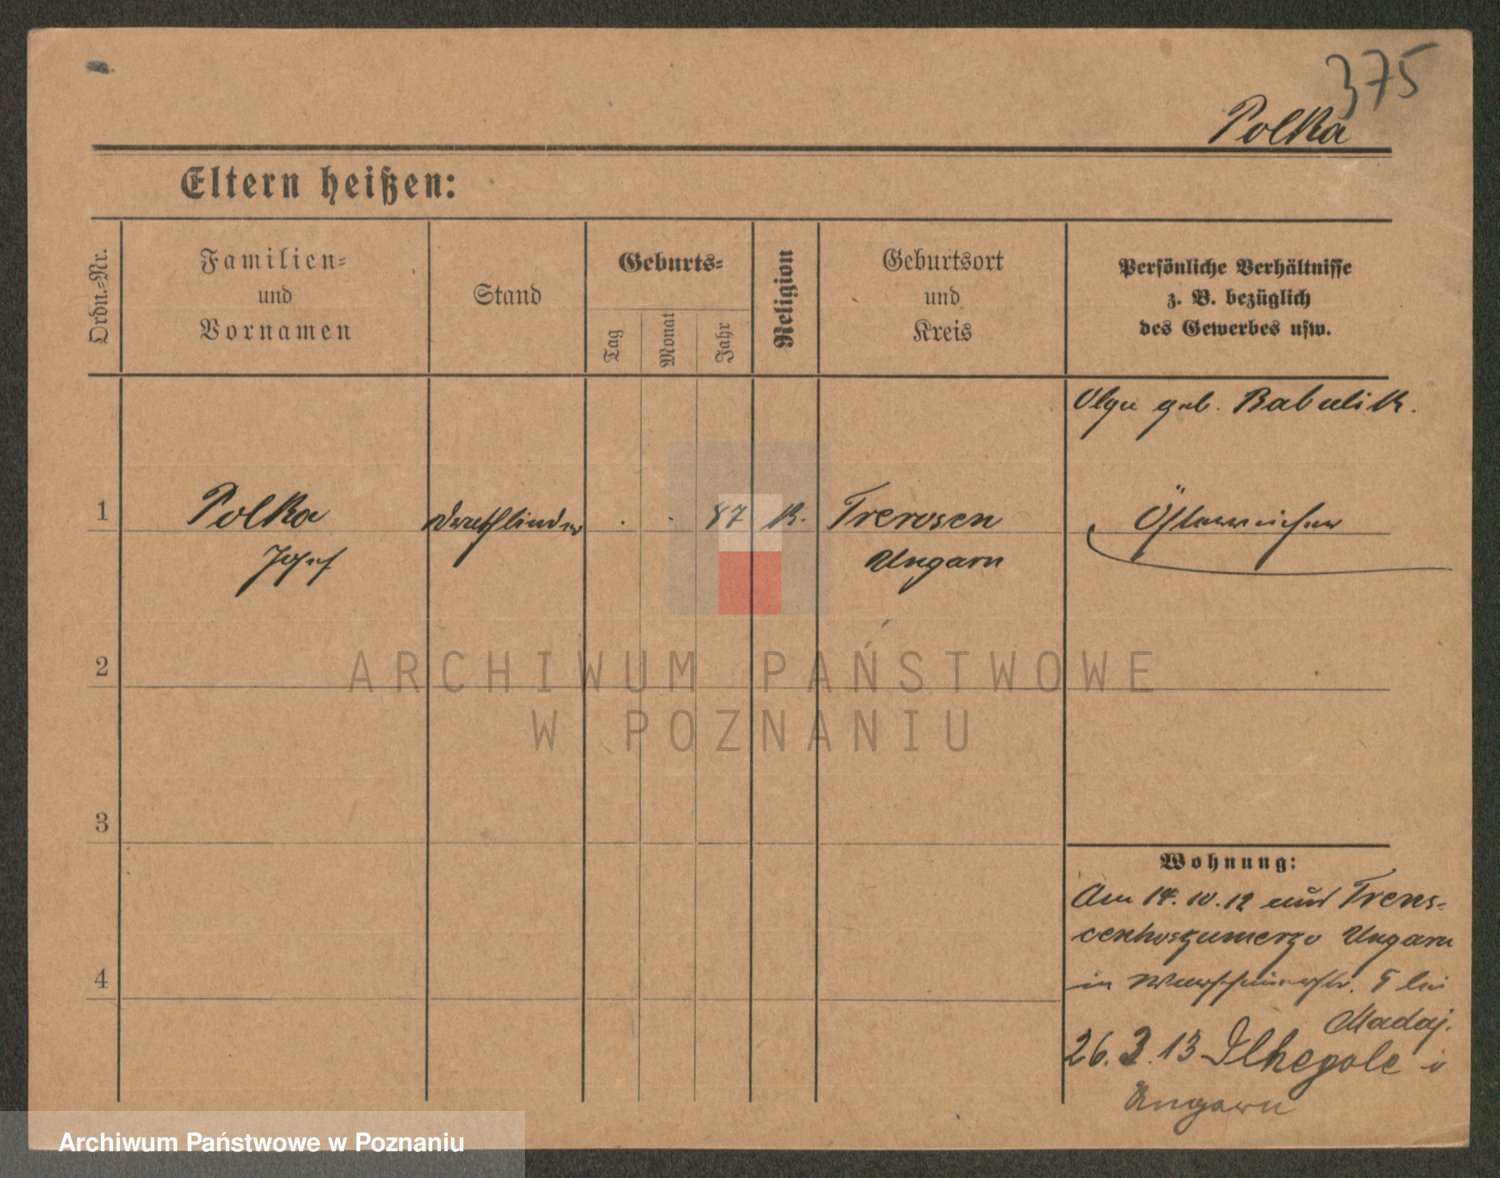 375
Polka
Eltern heißen:
Ordn.-Nr.
Familien-
und
Vornamen
Stand
Geburts-
Tag
Monat
Jahr
Religion
Geburtsort
und
Kreis
Persönliche Verhältnisse
z. B. bezüglich
des Gewerbes usw.
Olga geb. Babulik.
1
Polka
Josef
. . 87 K.
Trerosen
Ungarn
Österreicher
2
ARCHIWUM PAŃSTWOWE
W POZNANIU
3
Wohnung:
Am 14.10.12 aus Trens-
Ungarn
4
in 5 bei
Madaj.
26. 3. 13 Ilhegole i
Ungarn
Archiwum Państwowe w Poznaniu